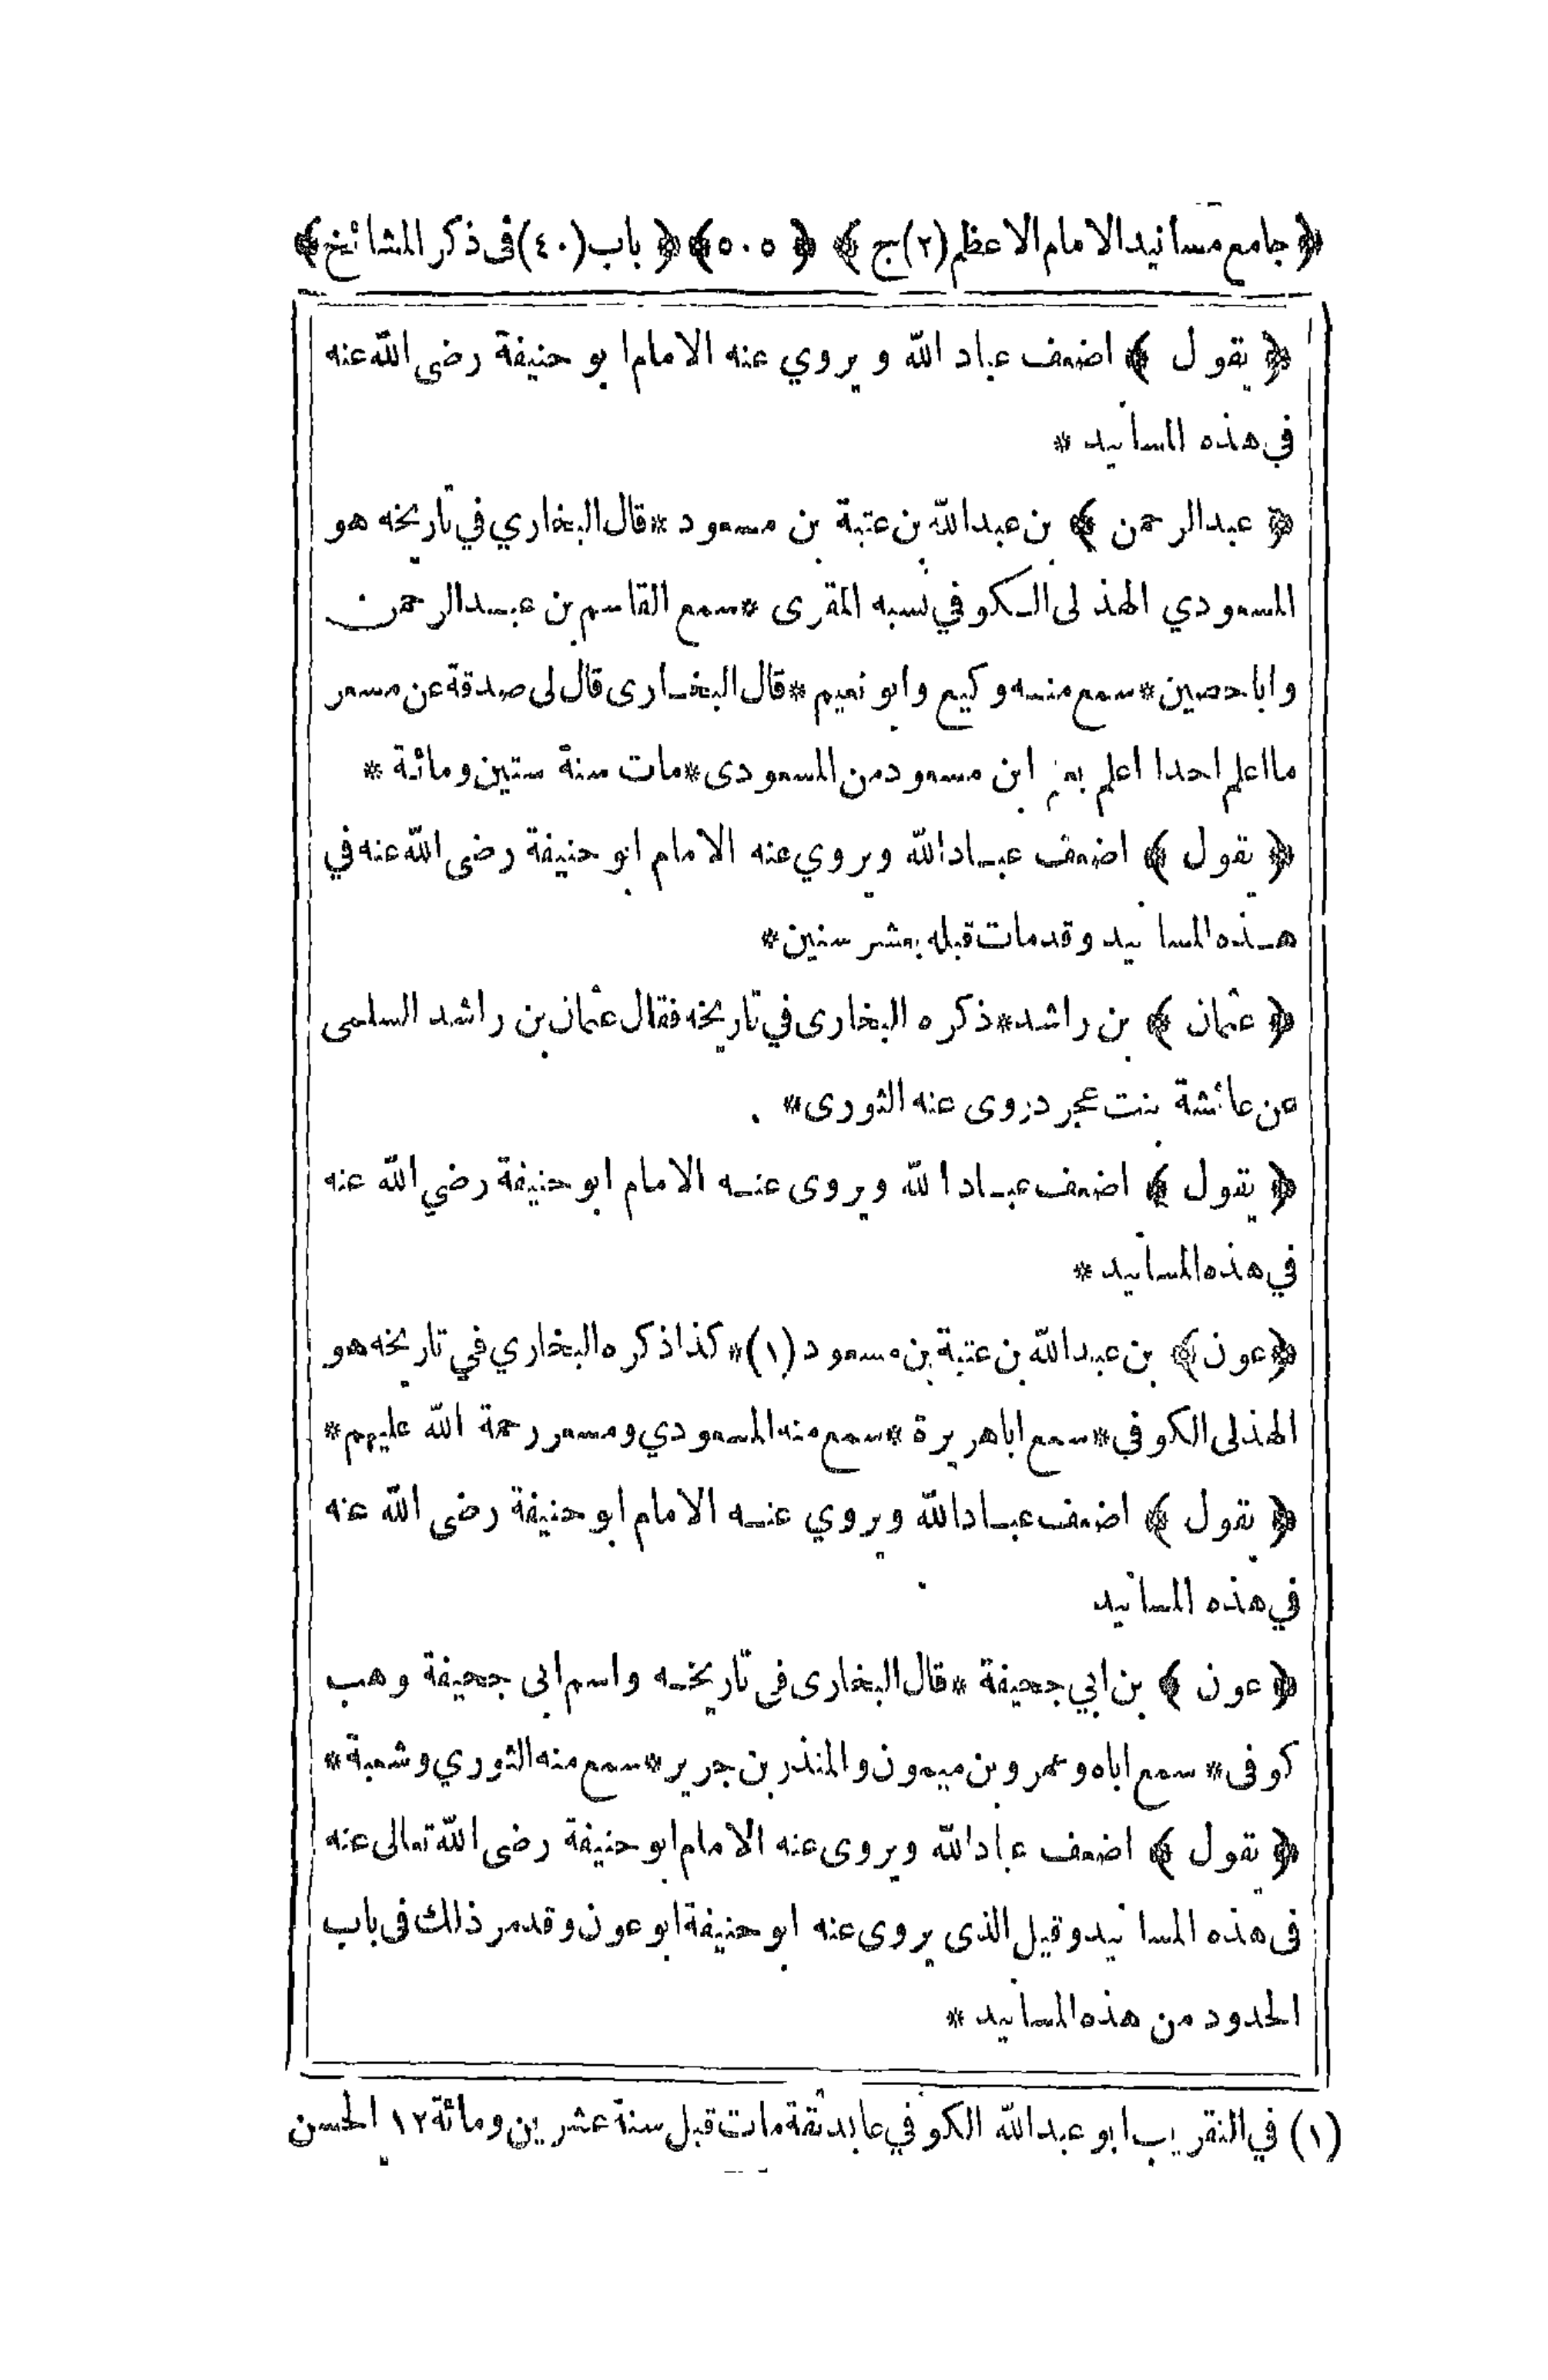 ﴿ جامع مسانيد الامام الاعظم (٢) ج ﴾ ﴿ ٥٠٥ ﴾ ﴿ باب (٤٠) فى ذكر المشائخ ﴾
﴿ يقول ﴾ اضعف عباد الله و يروي عنه الامام ابو حنيفة رضى الله عنه
في هذه المسانيد *
﴿ عبد الرحمن ﴾ بن عبد الله بن عتبة بن مسعود * قال البخاري في تاريخه هو
المسعودي الهذلى الكوفي نسبه المقرى * سمع القاسم بن عبد الرحمن
و ابا حصين * سمع منه و كيع و ابو نعيم * قال البخارى قال لى صدقة عن مسعر
ما اعلم احدا اعلم ابن مسعود من المسعودى * مات سنة ستين و مائة *
﴿ يقول ﴾ اضعف عباد الله و يروي عنه الامام ابو حنيفة رضى الله عنه في
هذه المسانيد و قد مات قبله بعشر سنين *
﴿ عثمان ﴾ بن راشد * ذكره البخارى في تاريخه فقال عثمان بن راشد السلمى
عن عائشة بنت عجرد روى عنه الثورى *
﴿ يقول ﴾ اضعف عباد الله و يروى عنه الامام ابو حنيفة رضي الله عنه
في هذه المسانيد *
﴿ عون ﴾ بن عبد الله بن عتبة بن مسعود (١) * كذا ذكره البخاري في تاريخه هو
الهذلى الكوفي * سمع ابا هريرة * سمع منه المسعودي و مسعر رحمة الله عليهم *
﴿ يقول ﴾ اضعف عباد الله و يروي عنه الامام ابو حنيفة رضى الله عنه
في هذه المسانيد
﴿ عون ﴾ بن ابي جحيفة * قال البخارى فى تاريخه و اسم ابى جحيفة وهب
كوفى * سمع اباه و عمرو بن ميمون و المنذر بن جرير * سمع منه الثوري و شعبة *
﴿ يقول ﴾ اضعف عباد الله و يروى عنه الامام ابو حنيفة رضى الله تعالى عنه
فى هذه المسانيد و قيل الذى يروى عنه ابو حنيفة ابو عون و قد مر ذلك فى باب
الحدود من هذه المسانيد *
(١) في التقريب ابو عبد الله الكوفي عابد ثقة مات قبل سنة عشرين و مائة ١٢ الحسن